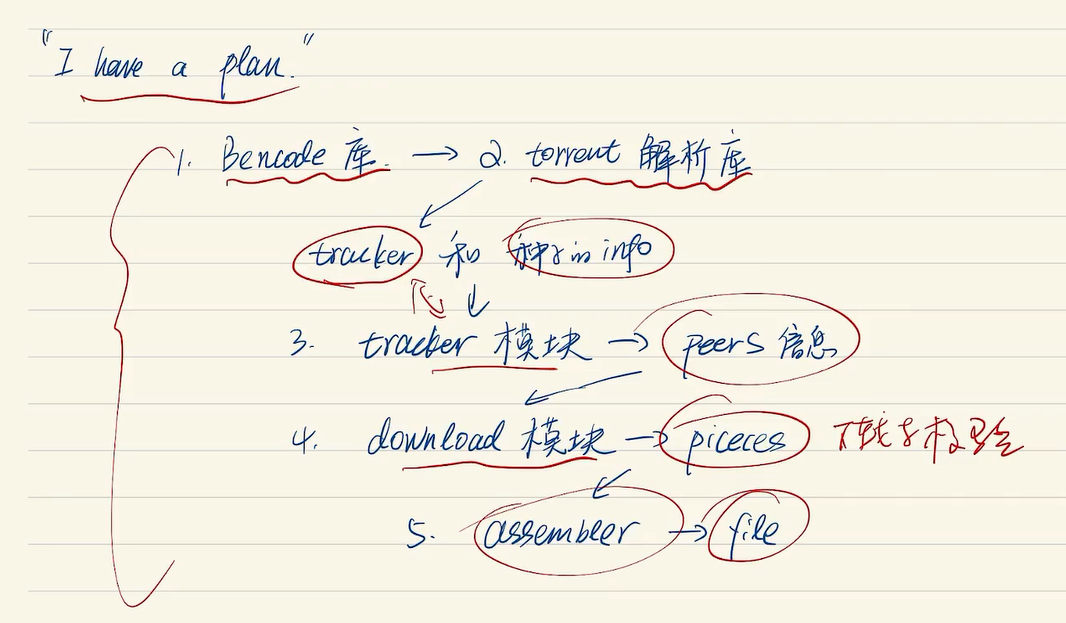 "I have a plan."
1. Bencode 库. → 2. torrent 解析库
tracker 和 种子的 info
3. tracker 模块 → peers 信息
4. download 模块 → piceces 下载与校验
5. assembler → file